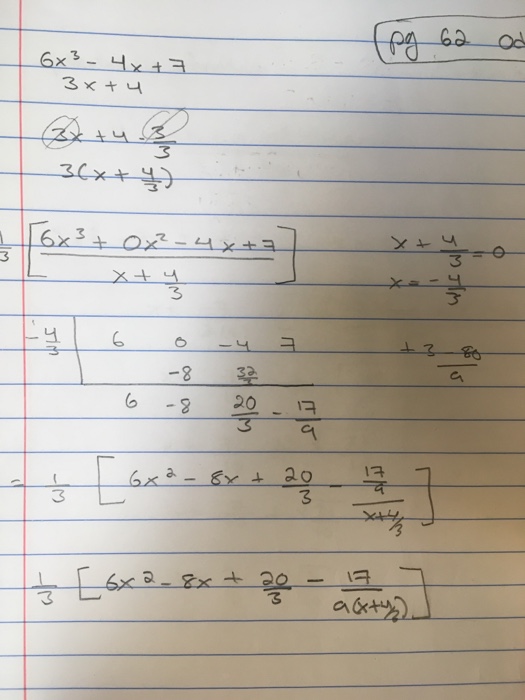 pg 62 od
6x³ - 4x + 7
3x + 4
3x + 4 · 3/3
3(x + 4/3)
1/3 [ (6x³ + 0x² - 4x + 7) / (x + 4/3) ]
x + 4/3 = 0
x = - 4/3
-4/3 | 6 0 -4 7
-8 32/3
+ 3 - 80/9
6 -8 20/3 - 17/9
= 1/3 [ 6x² - 8x + 20/3 - (17/9)/(x+4/3) ]
1/3 [ 6x² - 8x + 20/3 - 17/(9(x+4/3)) ]